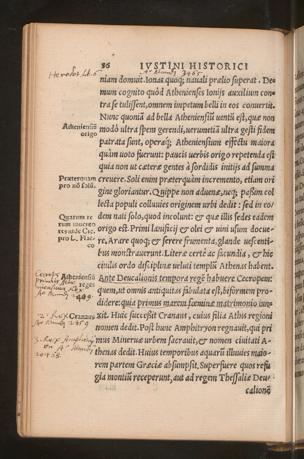 36 IVSTINI HISTORICI
niam domuit. Ionas quoq; nauali prælio superat. De
mum cognito quòd Athenienses Ionijs auxilium con-
tra se tulissent, omnem impetum belli in eos conuertit.
Nunc quoniã ad bella Atheniensiũ uentũ est, quæ non
modò ultra spem gerendi, uerumetiã ultra gesti fidem
patrata sunt, operaq; Atheniensium effectu maiora
quàm uoto fuerunt: paucis uerbis origo repetenda est
quia non ut cæteræ gentes à sordidis initijs ad summa
creuere. Soli enim præterquàm incremento, etiam ori
gine gloriantur. Quippe non aduenæ, neq; passim col
lecta populi colluuies originem urbi dedit: sed in eo-
dem nati solo, quod incolunt: & quæ illis sedes eadem
origo est. Primi lanificij & olei & uini usum docue-
re. Arare quoq; & serere frumenta, glande uescenti-
bus monstrauerunt. Literæ certè ac facundia, & hic
ciuilis ordo disciplinæ ueluti templũ Athenas habent.
Ante Deucalionis tempora regẽ habuere Cecropem:
quem, ut omnis antiquitas fabulata est, biformem pro
didere: quia primus marem fœminæ matrimonio iun-
xit. Huic successit Cranaus, cuius filia Atthis regioni
nomen dedit. Post hunc Amphitryon regnauit, qui pri
mus Mineruæ urbem sacrauit, & nomen ciuitati A-
thenas dedit. Huius temporibus aquarũ illuuies maio-
rem partem Græciæ absumpsit. Superfuere quos refu
gia montiũ receperunt, aut ad regem Thessaliæ Deu-
calionẽ
Atheniensiũ
origo
Præterquam
pro nõ solũ.
Quarum re
rum
Atheniensiũ
reges
2. Rex Cranaus